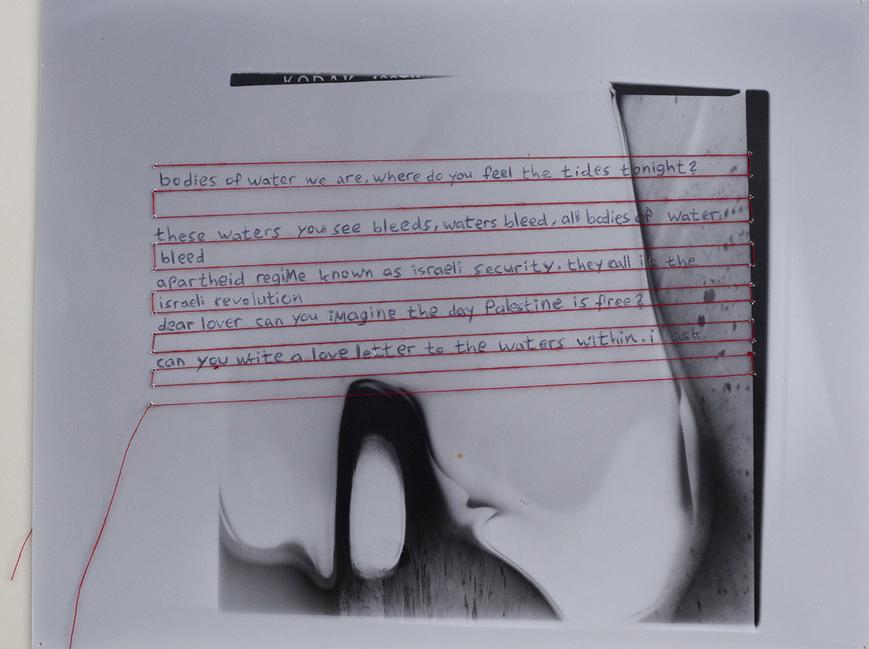 KODAK
bodies of water we are, where do you feel the tides tonight?
these waters you see bleeds, waters bleed, all bodies of water
bleed
apartheid regime known as israeli security. they call it the
israeli revolution
dear lover can you imagine the day Palestine is free?
can you write a love letter to the waters within. i ask